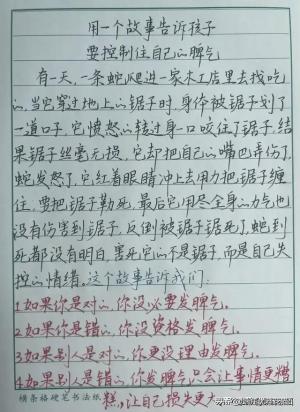 用一个故事告诉孩子
要控制住自己的脾气
有一天,一条蛇爬进一家木工店里去找吃
的,当它穿过地上的锯子时,身体被锯子划了
一道口子,它愤怒的转过身一口咬住了锯子,结
果锯子丝毫无损,它却把自己的嘴巴弄伤了,
蛇发怒了,它红着眼睛冲上去用力把锯子缠
住,要把锯子勒死,最后它用尽全身的力气也
没有伤害到锯子,反倒被锯子锯死了,蛇到
死都没有明白,害死它的不是锯子,而是自己失
控的情绪。这个故事告诉我们:
1.如果你是对的,你没必要发脾气。
2.如果你是错的,你没资格发脾气。
3.如果别人是对的,你更没理由发脾气。
4.如果别人是错的,你发脾气只会让事情更糟
糕,让自己损失更大
横条格硬笔书法纸